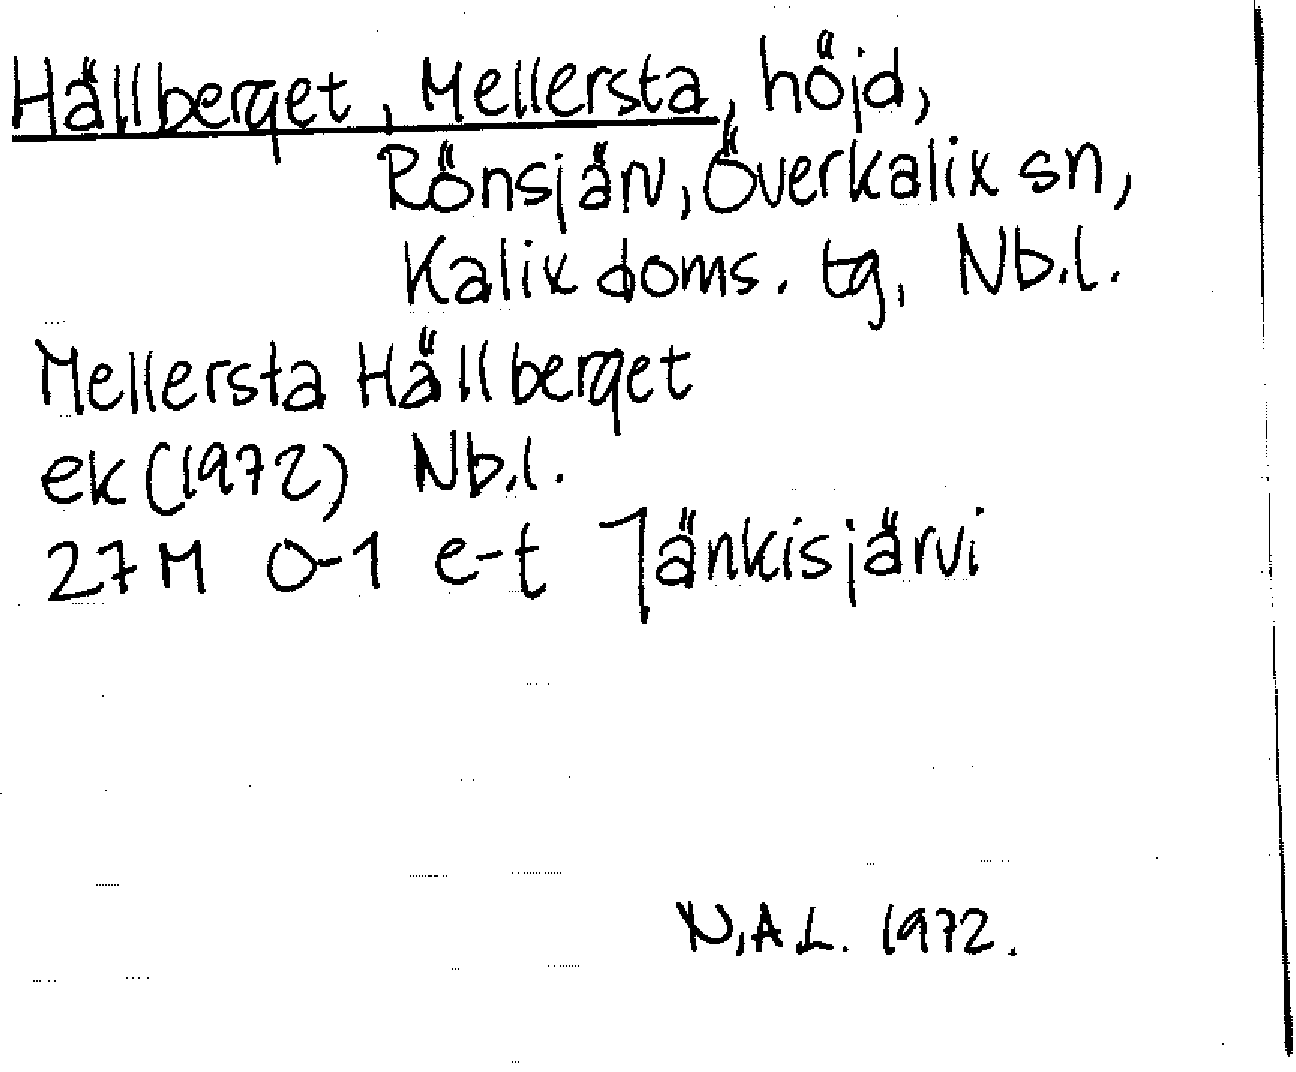 Hällberget, Mellersta, höjd,
Rönsjärv, Överkalix sn,
Kalix doms. tg, Nb.l.
Mellersta Hällberget
ek (1972) Nb.l.
27M 0-1 e-t Jänkisjärvi
N.A.L. 1972.